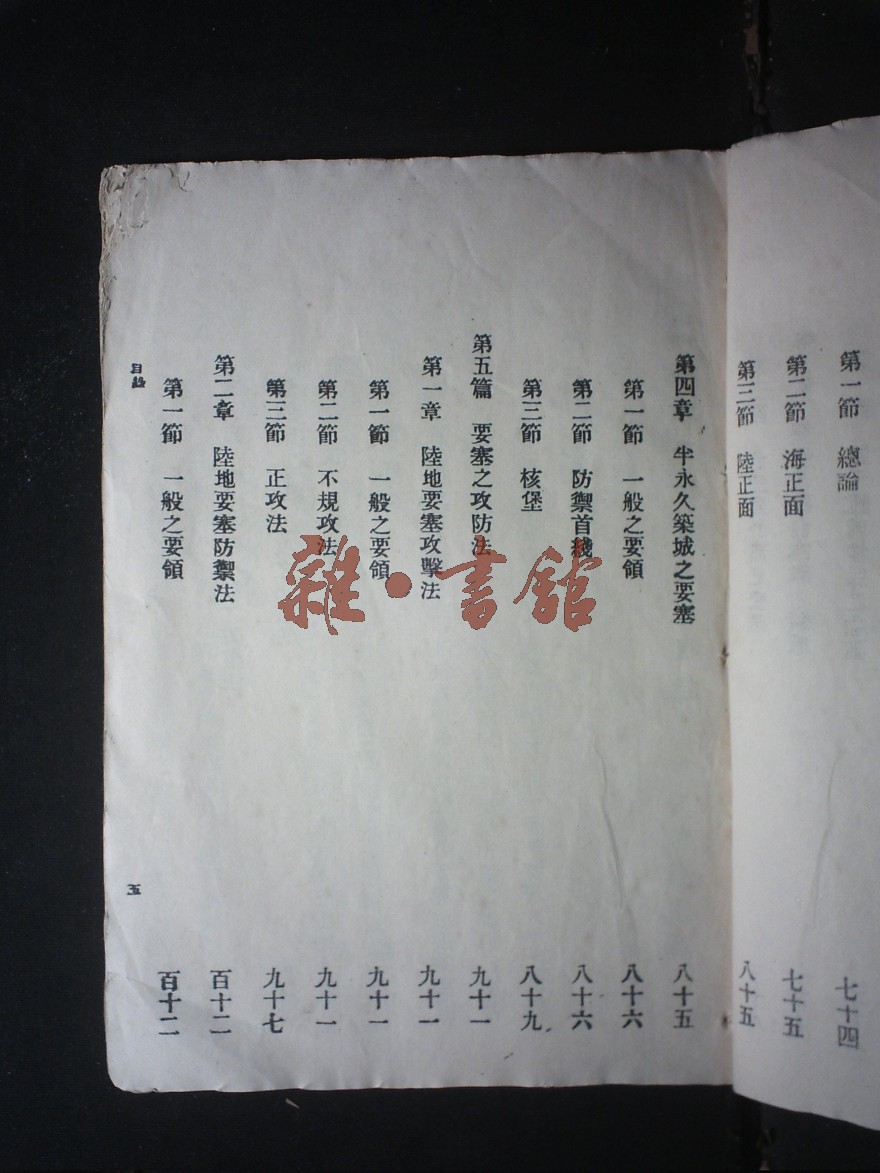 第一節　總論　七十四
第二節　海正面　七十五
第三節　陸正面　八十五
第四章　半永久築城之要塞　八十五
第一節　一般之要領　八十六
第二節　防禦首綫　八十六
第三節　核堡　八十九
第五篇　要塞之攻防法　九十一
第一章　陸地要塞攻擊法　九十一
第一節　一般之要領　九十一
第二節　不規攻法　九十一
第三節　正攻法　九十七
第二章　陸地要塞防禦法　百十二
第一節　一般之要領　百十二
目錄　五
雜·書館